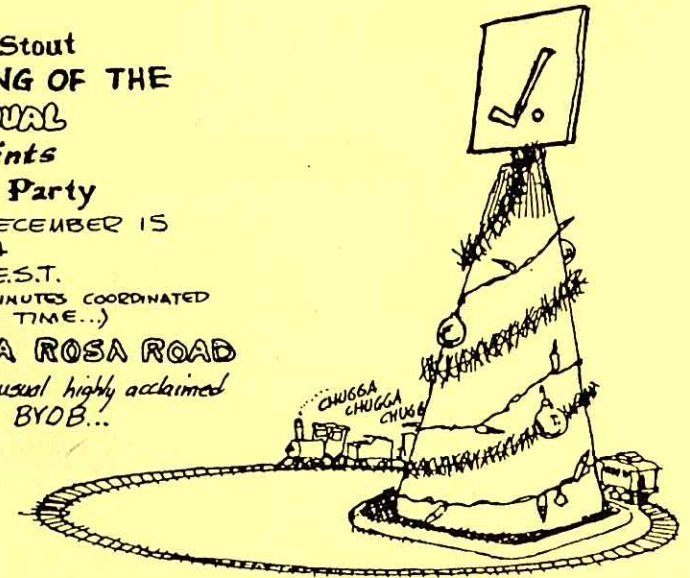 Stout
NG OF THE
UAL
ints
Party
DECEMBER 15
E.S.T.
INUTES COORDINATED
TIME...)
A ROSA ROAD
usual highly acclaimed
BYOB...
CHUGGA
CHUGGA
CHUGG